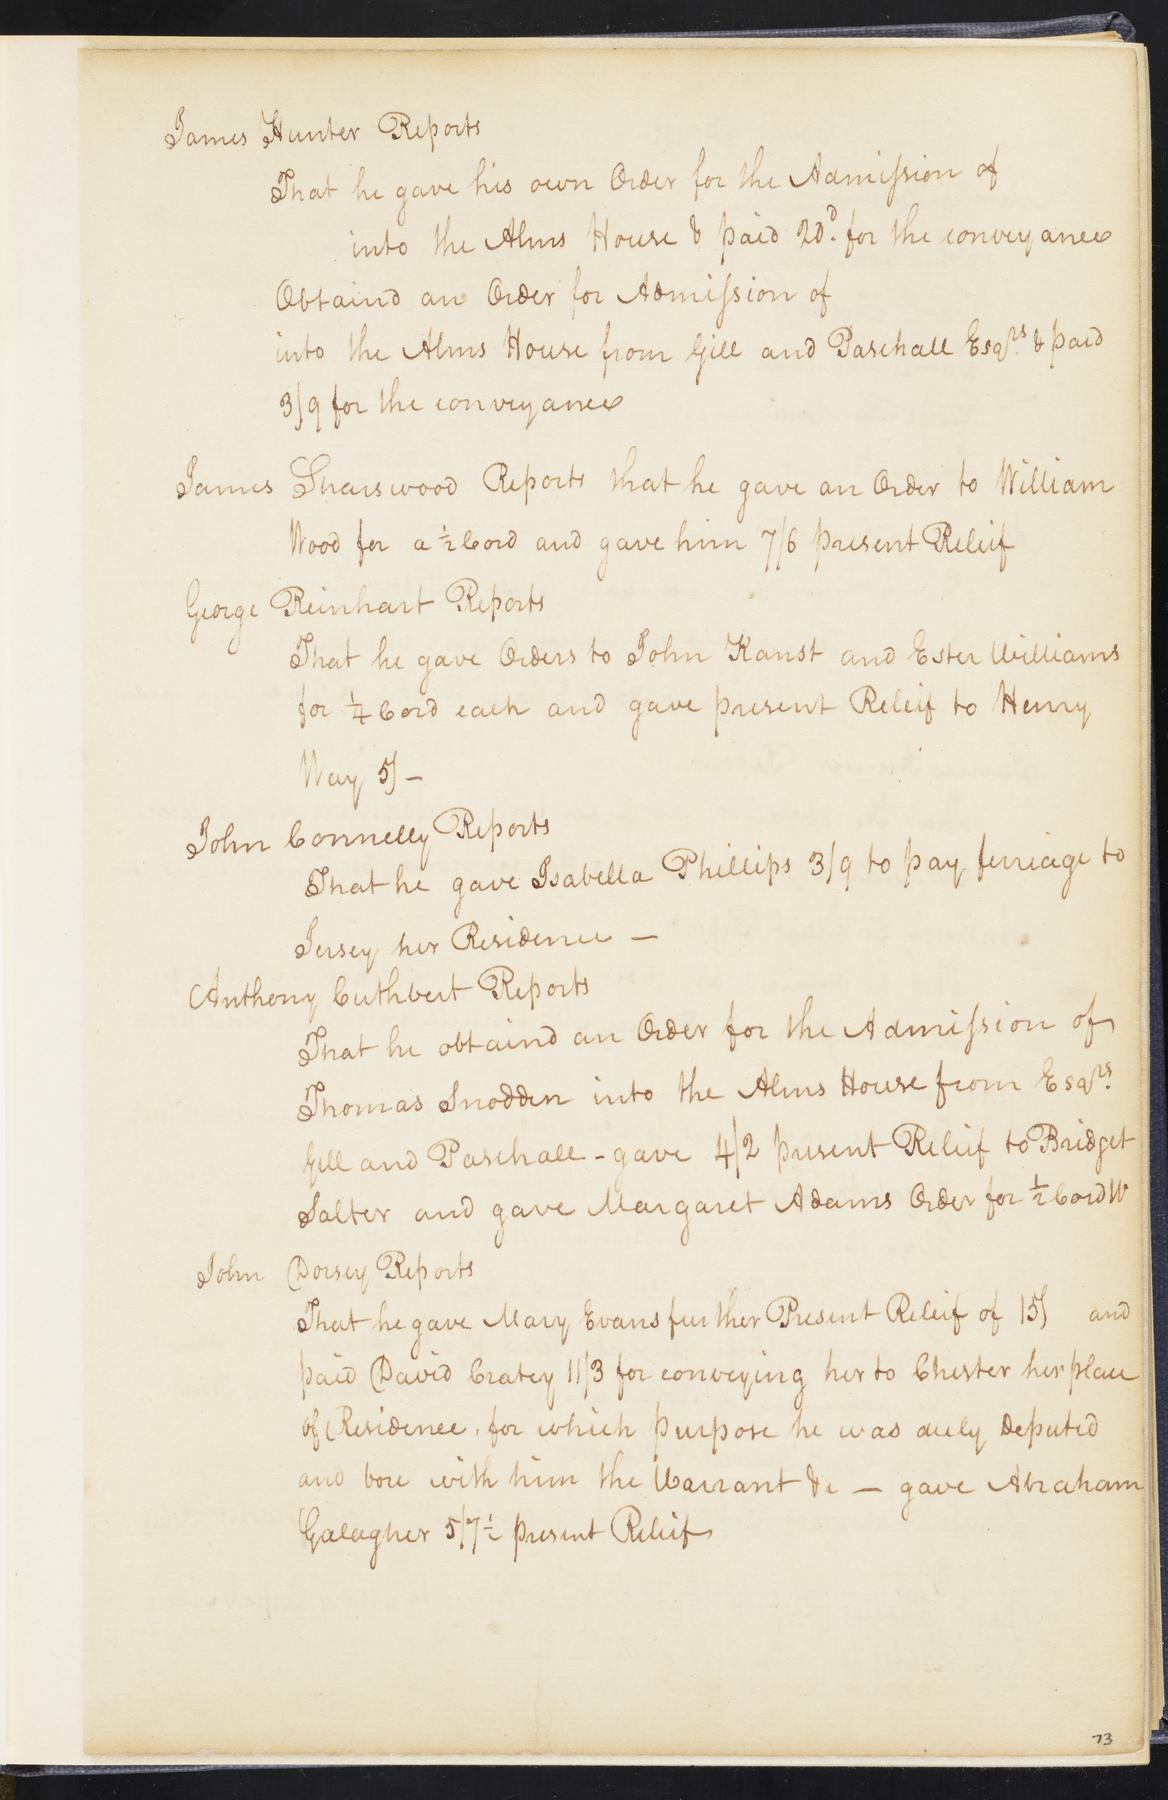 James Hunter Reports
That he gave his own Order for the Admission of
into the Alms House & paid 20d. for the conveyance
Obtaind an Order for Admission of
into the Alms House from Gill and Paschall Esqrs. & paid
3/9 for the conveyance
James Sharswood Reports that he gave an Order to William
Wood for a ½ Cord and gave him 7/6 present Releif
George Reinhart Reports
That he gave Orders to John Kanst and Ester Williams
for ¼ Cord each and gave present Releif to Henry
Way 5/ —
John Connelly Reports
That he gave Isabella Phillips 3/9 to pay ferriage to
Jersey her Residence —
Anthony Cuthbert Reports
That he obtaind an Order for the Admission of
Thomas Snodden into the Alms House from Esqrs.
Gill and Paschall - gave 4/2 present Releif to Bridget
Salter and gave Margaret Adams Order for ½ Cord W
John Dorsey Reports
That he gave Mary Evans further Present Releif of 15/ and
paid David Cratey 11/3 for conveying her to Chester her place
of Residence, for which purpose he was duly Deputed
and bore with him the Warrant &c — gave Abraham
Galagher 5/7½ present Releif
73